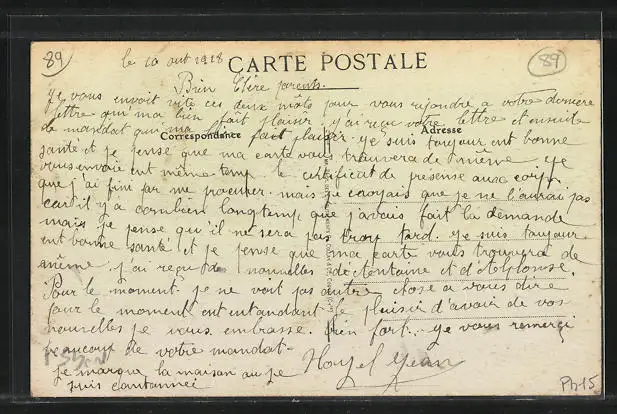 89
89
le 10 out 1918
CARTE POSTALE
Bien Chère parents.
je vous envoit vite ces deux môts pour vous rejondre a votre dernière
lettre qui m'a bien fait plaisir. j'ai reçu votre lettre et ensuite
de mandat qui ma fait plaisir. je suis toujour ent bonne
Correspondance
Adresse
santé et je pense que ma carte vous trouvera de même. je
vous envoie ent même temp le certificat de présense aux
que j'ai fini par me procurer. mais je croyais que je ne l'aurai pas
car il y'a combien longtemp que j'avais fait la demande
mais je pense qu'il ne sera pas trop tard. je suis toujour
ent bonne santé et je pense que ma carte vous trouvera de
même. j'ai reçu de nouvelles de et
Pour le moment je ne voit pas autre chose a vous dire
pour le moment ent entandant le plaisir d'avoir de vos
nouvelles je vous embrasse bien fort. je vous remerçi
beaucoup de votre mandat.
je marque la maison au je
suis cantonnée
Jean
Ph15